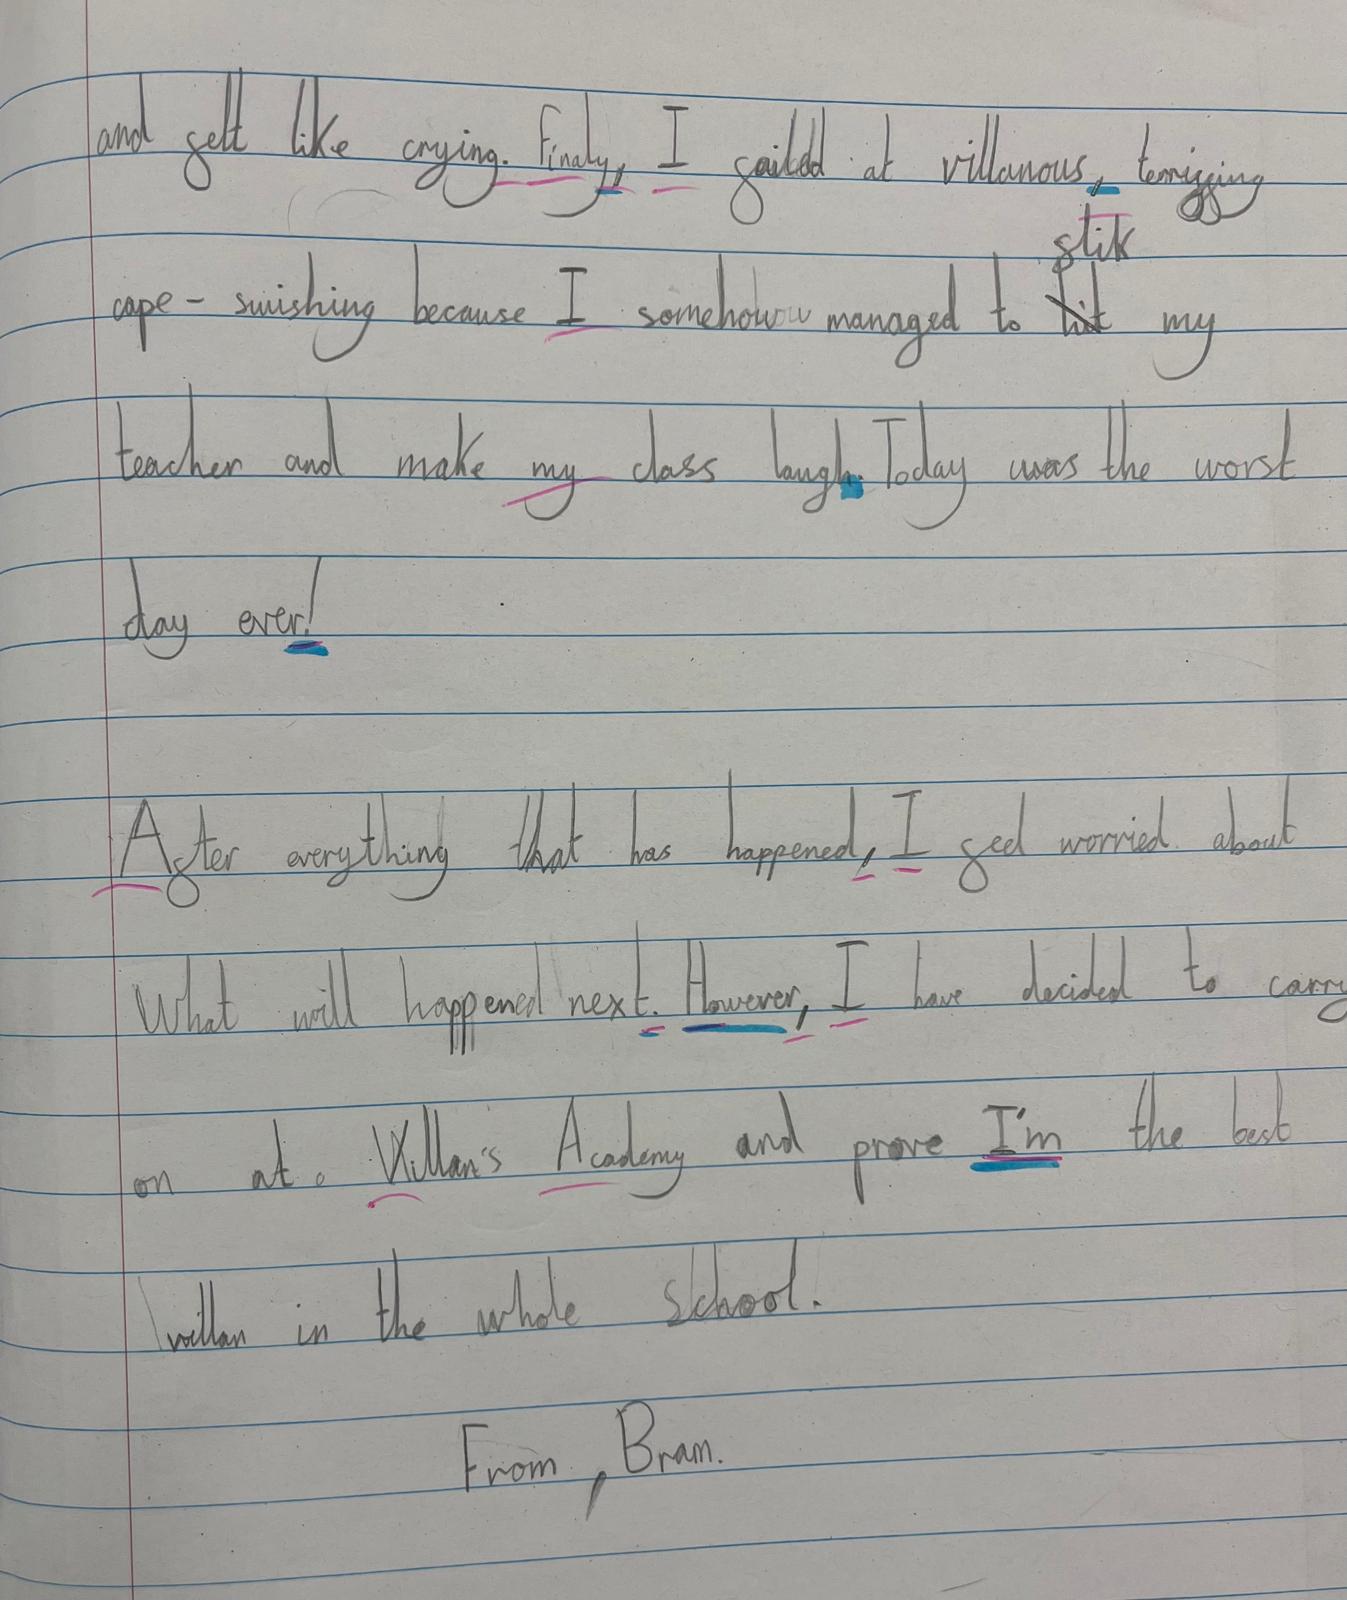 and felt like crying. Finaly, I faildd at villanous, terriffing
stik
cape-swishing because I somehoww managed to hit my
teacher and make my class laugh. Today was the worst
day ever!
After everything that has happened, I feel worried about
What will happened next. However, I have decided to carry
on at a Villan's Academy and prove I'm the best
villan in the whole school.
From, Bram.